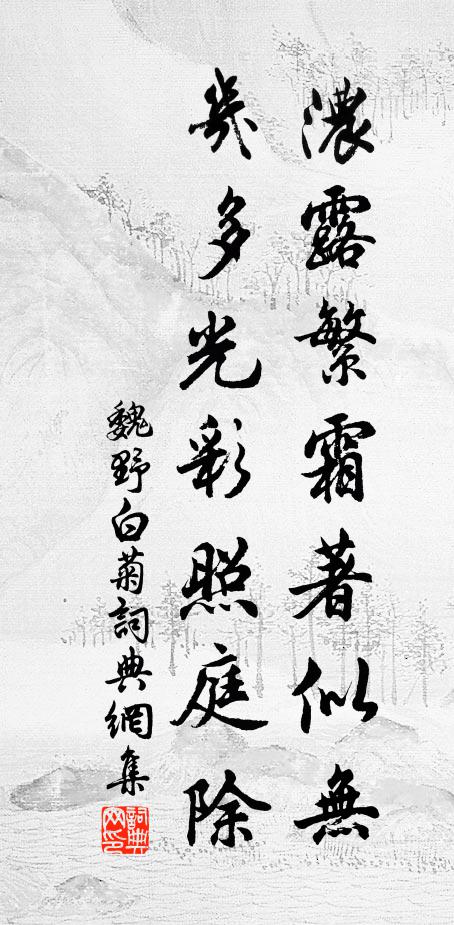 濃露繁霜著似無
幾多光彩照庭除
魏野白菊詞典網集
詞典网印